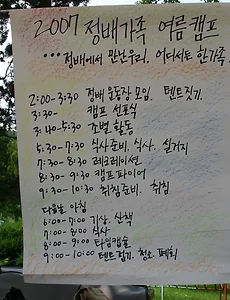 2007 정배가족 여름캠프
··· 정배에서 만난우리. 어디서도 한가족.
2:00-3:30 정배 운동장 모임. 텐트짓기.
3:30- 캠프 선포식
3:40-5:30 조별 활동
5:30-7:30 식사준비. 식사. 설거지
7:30-8:30 레크레이션
8:30-9:30 캠프파이어
9:30-10:30 취침준비. 취침
다음날 아침
6:00-7:00 기상. 산책
7:00-8:00 식사
8:00-9:00 타임캡슐
9:00-10:00 텐트걷기. 청소. 폐회